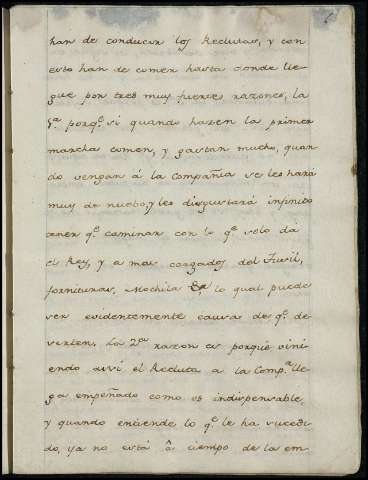 han de conducir los Reclutas, y con
esto han de comer hasta donde lle-
gue por tres muy fuertes razones, la
1ª porqe. si quando hazen la primer
marcha comen, y gastan mucho, quan-
do vengan á la Compañia se les hará
muy de nuebo, y les disgustará infinito
tener qe. caminar con lo qe. solo dá
el Rey, y a mas cargados del Fusil,
fornituras, Mochila &a. lo qual puede
ser evidentemente causa de qe. de-
serten. La 2ª razon es porque vini-
endo assi el Recluta a la Compª. lle-
ga empeñado como es indispensable,
y quando entiende lo qe. le ha sucedi-
do, ya no está â tiempo de la em-